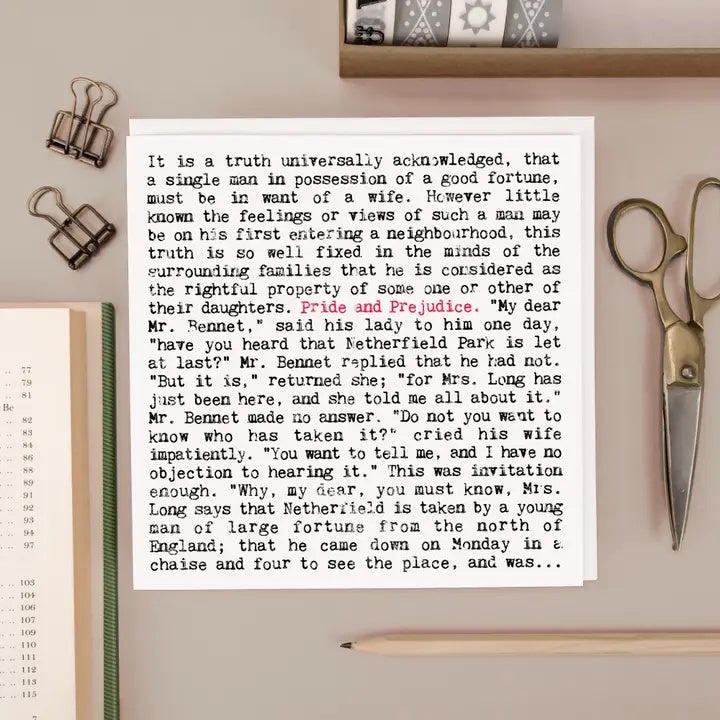 It is a truth universally acknowledged, that
a single man in possession of a good fortune,
must be in want of a wife. However little
known the feelings or views of such a man may
be on his first entering a neighbourhood, this
truth is so well fixed in the minds of the
surrounding families that he is considered as
the rightful property of some one or other of
their daughters. Pride and Prejudice. "My dear
Mr. Bennet," said his lady to him one day,
"have you heard that Netherfield Park is let
at last?" Mr. Bennet replied that he had not.
"But it is," returned she; "for Mrs. Long has
just been here, and she told me all about it."
Mr. Bennet made no answer. "Do not you want to
know who has taken it?" cried his wife
impatiently. "You want to tell me, and I have no
objection to hearing it." This was invitation
enough. "Why, my dear, you must know, Mrs.
Long says that Netherfield is taken by a young
man of large fortune from the north of
England; that he came down on Monday in a
chaise and four to see the place, and was...
77
79
81
Be
82
83
84
86
88
89
91
92
93
94
94
97
103
104
106
107
109
110
111
112
113
115
7